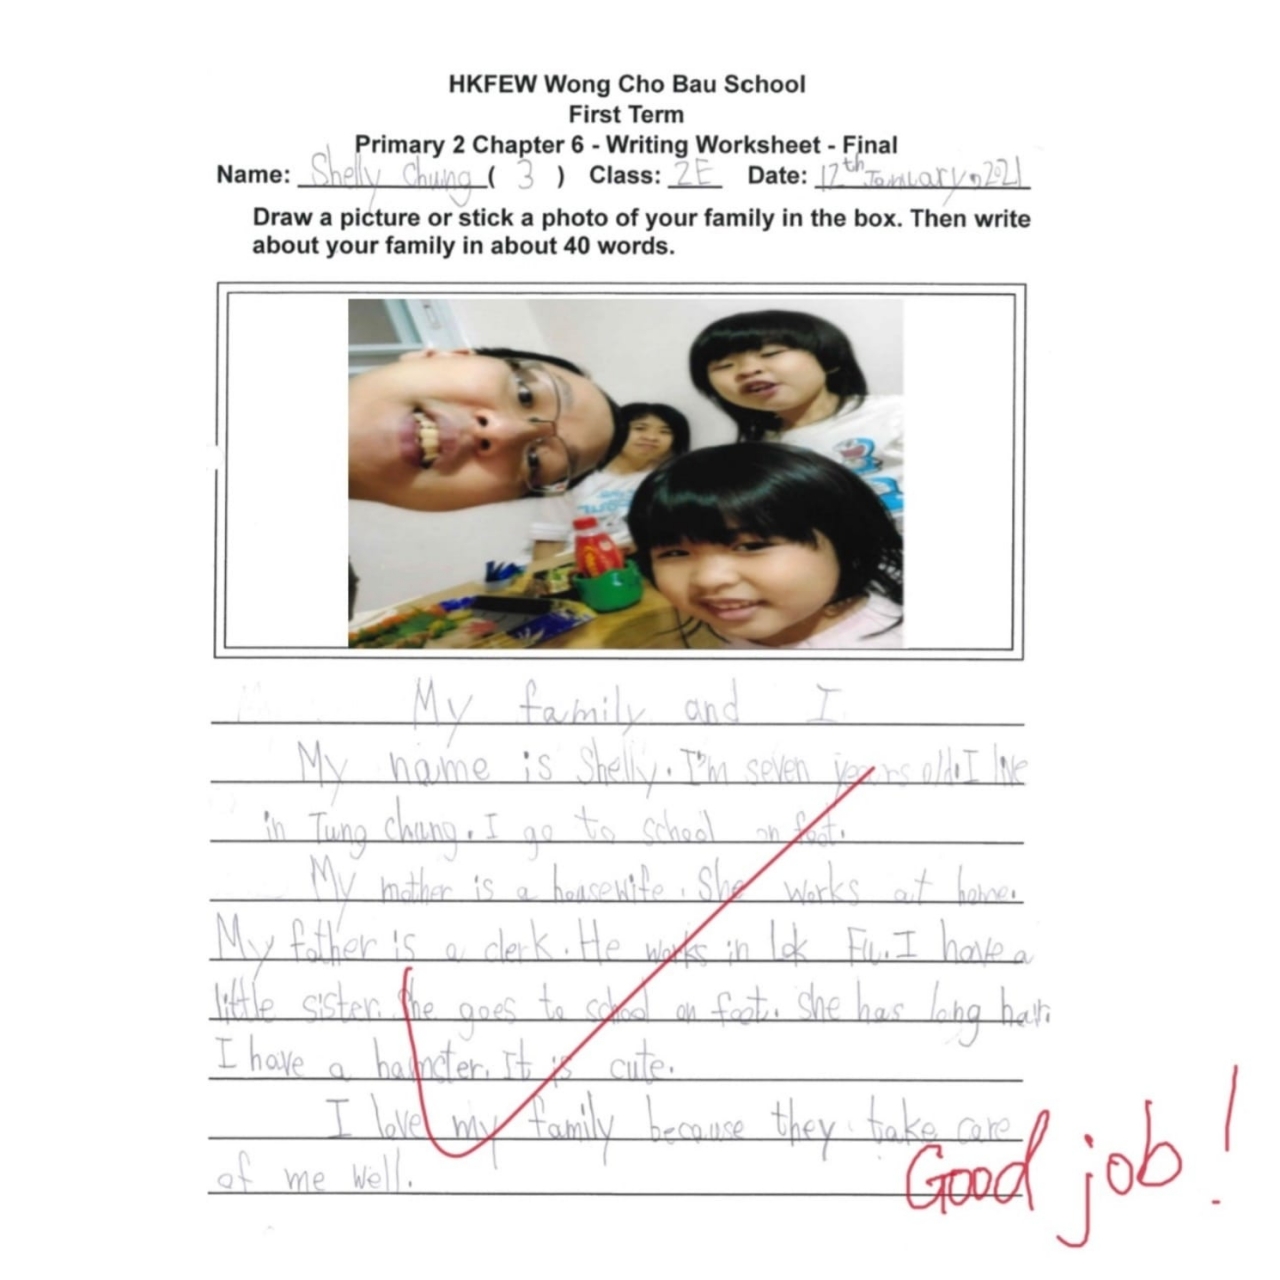 HKFEW Wong Cho Bau School
First Term
Primary 2 Chapter 6 - Writing Worksheet - Final
Name: Shelly Chung ( 3 ) Class: 2E Date: 12th January, 2021
Draw a picture or stick a photo of your family in the box. Then write
about your family in about 40 words.
My family and I
My name is Shelly. I'm seven years old. I live
in Tung Chung. I go to school on foot.
My mother is a housewife. She works at home.
My father is a clerk. He works in Lok Fu. I have a
little sister. She goes to school on foot. She has long hair.
I have a hamster. It is cute.
I love my family because they take care
of me well.
Good job!